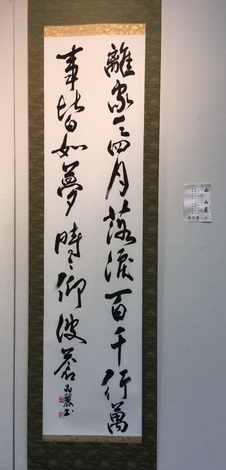 離家三四月落涙百千行萬
事皆如夢時々仰彼蒼